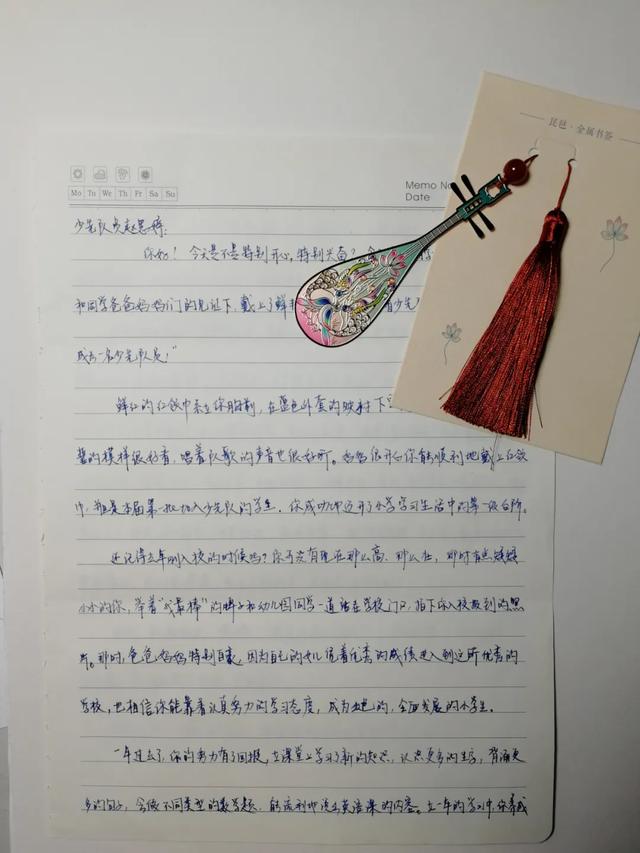 琵琶·金属书签
Memo No
Date
Mo Tu We Th Fr Sa Su
少先队员赵思婷:
你好！今天是不是特别开心，特别兴奋？
和同学爸爸妈妈们的见证下，戴上了鲜 有少先
成为一名少先队员！"
鲜红的红领巾系在你胸前，在蓝色外套的映衬下
誓的模样很好看，唱着队歌的声音也很好听。妈妈很开心你能顺利地戴上红领
巾，并且是本届第一批加入少先队的学生。你成功地迈开了小学学习生活中的第一级台阶。
还记得去年刚入校的时候吗？你还没有现在那么高、那么壮，那时有点矮矮
小小的你，举着"我最棒"的牌子和幼儿园同学一道站在学校门口，拍下你入校报到的照
片。那时，爸爸妈妈特别自豪，因为自己的女儿凭着优秀的成绩进入到这所优秀的
学校，也相信你能靠着认真努力的学习态度，成为出色的，全面发展的小学生。
一年过去了，你的努力有了回报，在课堂上学习了新的知识，认识更多的生字，背诵更
多的句子，会做不同类型的数学题，能流利地读出英语课的内容。在一年的学习中，你养成